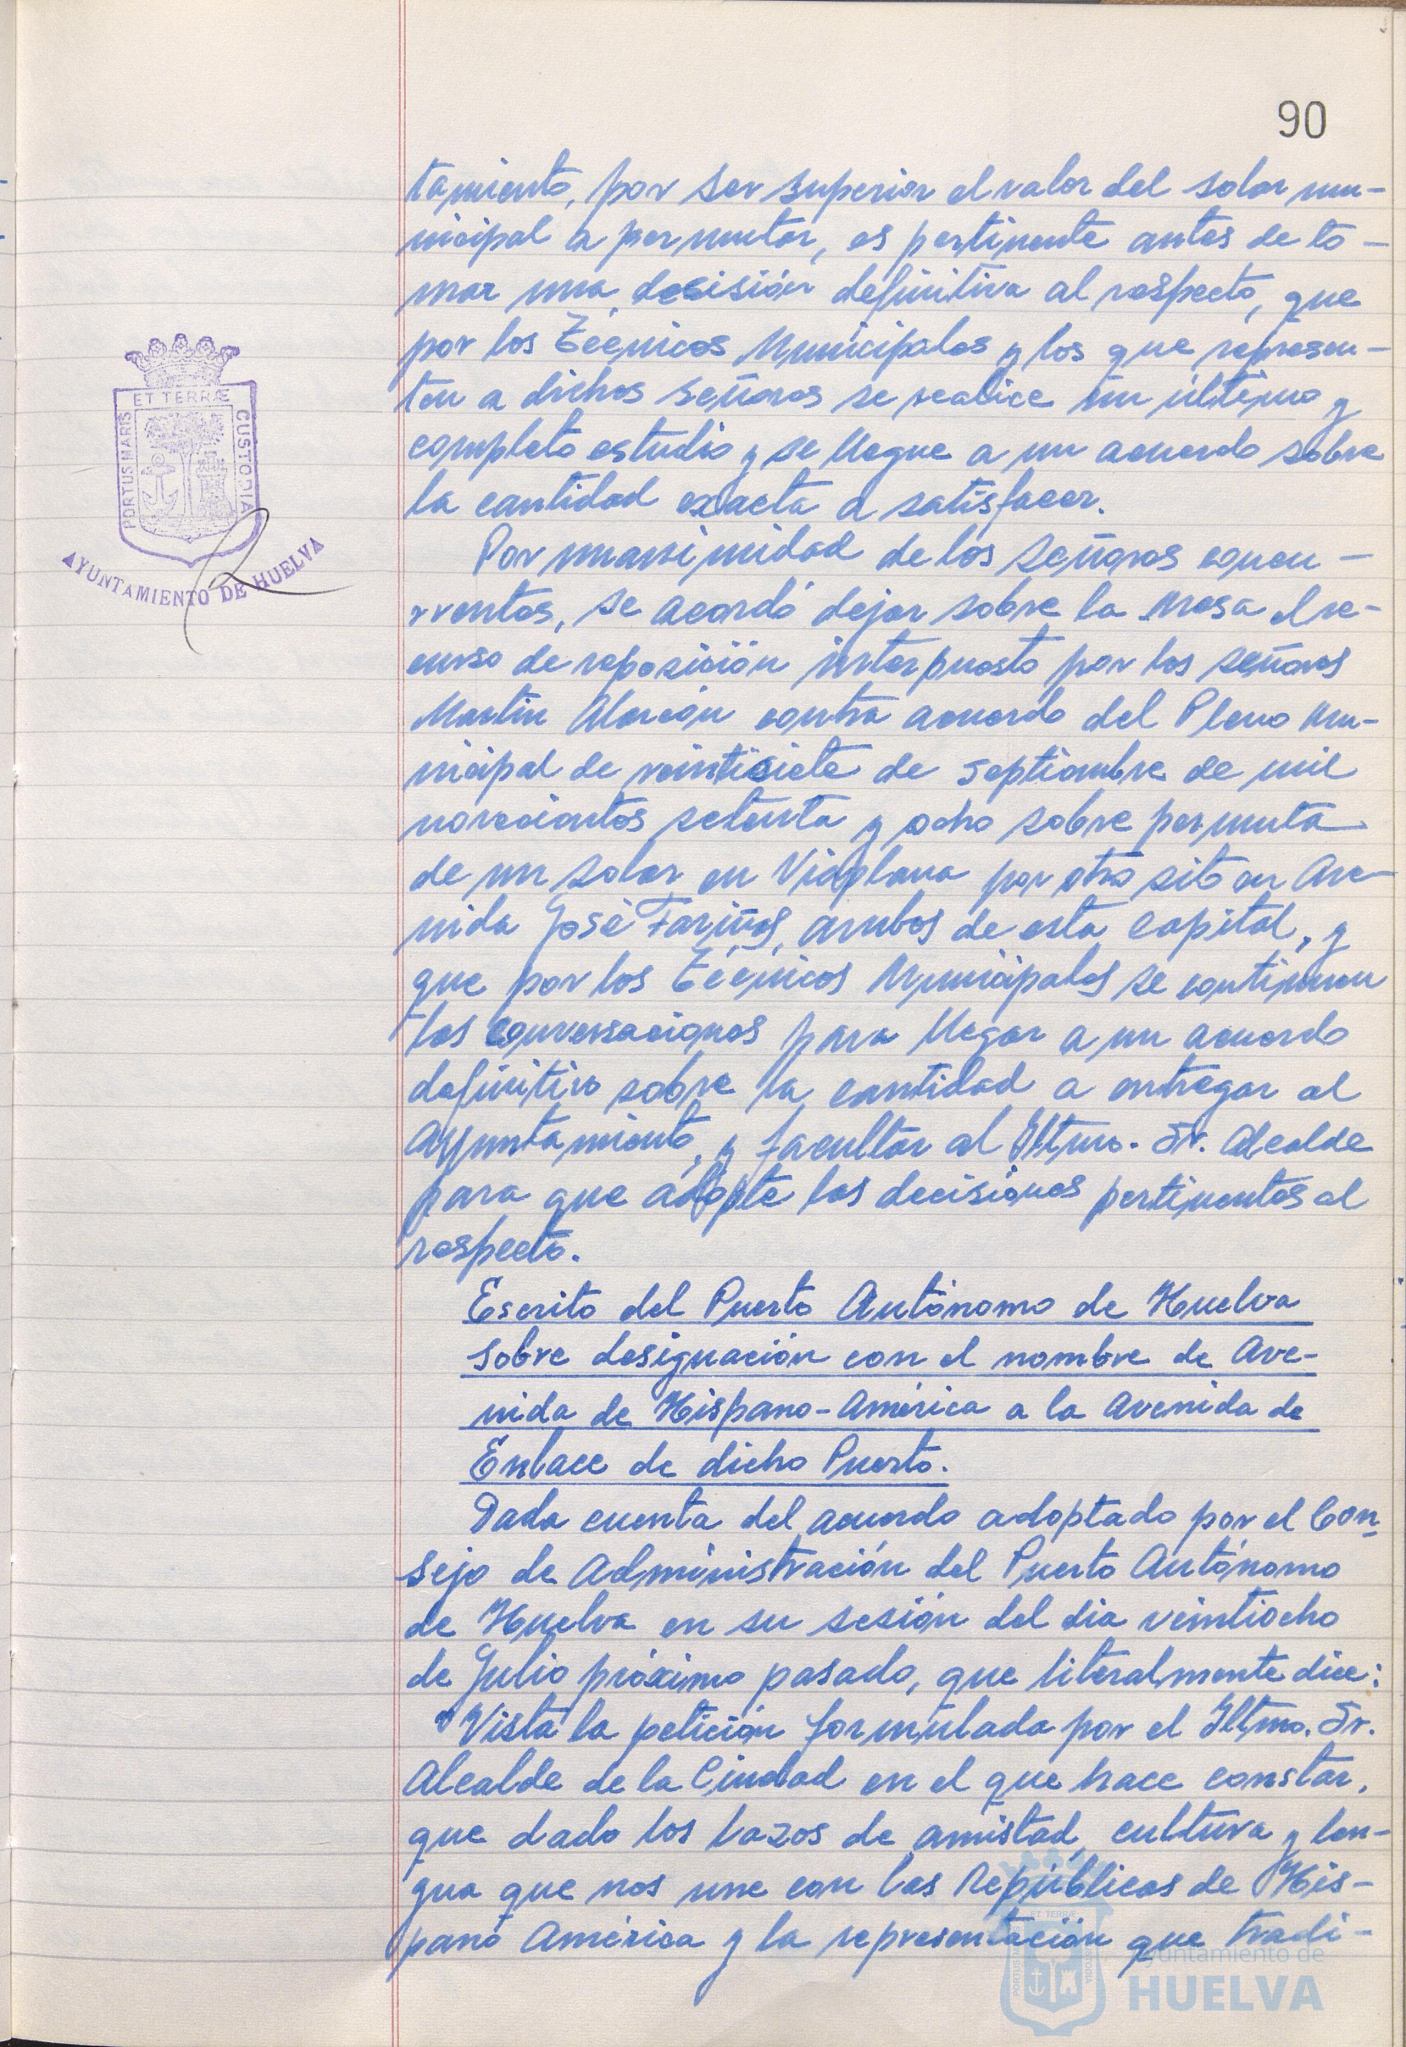 90
tamiento, por ser superior el valor del solar mu-
nicipal a permutar, es pertinente antes de to-
mar una decisión definitiva al respecto, que
por los Técnicos Municipales y los que represen-
ten a dichos señores se realice un último y
completo estudio y se llegue a un acuerdo sobre
la cantidad exacta a satisfacer.
Por unanimidad de los señores concu-
rrentes, se acordó dejar sobre la mesa el re-
curso de reposición interpuesto por los señores
Martín Alarcón contra acuerdo del Pleno Mu-
nicipal de veintisiete de septiembre de mil
novecientos setenta y ocho sobre permuta
de un solar en Viaplana por otro sito en Ave-
nida José Fariñas, ambos de esta capital, y
que por los Técnicos Municipales se continuen
las conversaciones para llegar a un acuerdo
definitivo sobre la cantidad a entregar al
Ayuntamiento, y facultar al Iltmo. Sr. Alcalde
para que adopte las decisiones pertinentes al
respecto.
Escrito del Puerto Autónomo de Huelva
sobre designación con el nombre de Ave-
nida de Hispano-América a la Avenida de
Enlace de dicho Puerto.
Dada cuenta del acuerdo adoptado por el Con-
sejo de Administración del Puerto Autónomo
de Huelva en su sesión del dia veintiocho
de Julio próximo pasado, que literalmente dice:
"Vista la petición formulada por el Iltmo. Sr.
Alcalde de la Ciudad en el que hace constar,
que dado los lazos de amistad, cultura y len-
gua que nos une con las Repúblicas de His-
pano América y la representación que tradi-
PORTUS MARIS ET TERRÆ CUSTODIA
AYUNTAMIENTO DE HUELVA
Ayuntamiento de
HUELVA